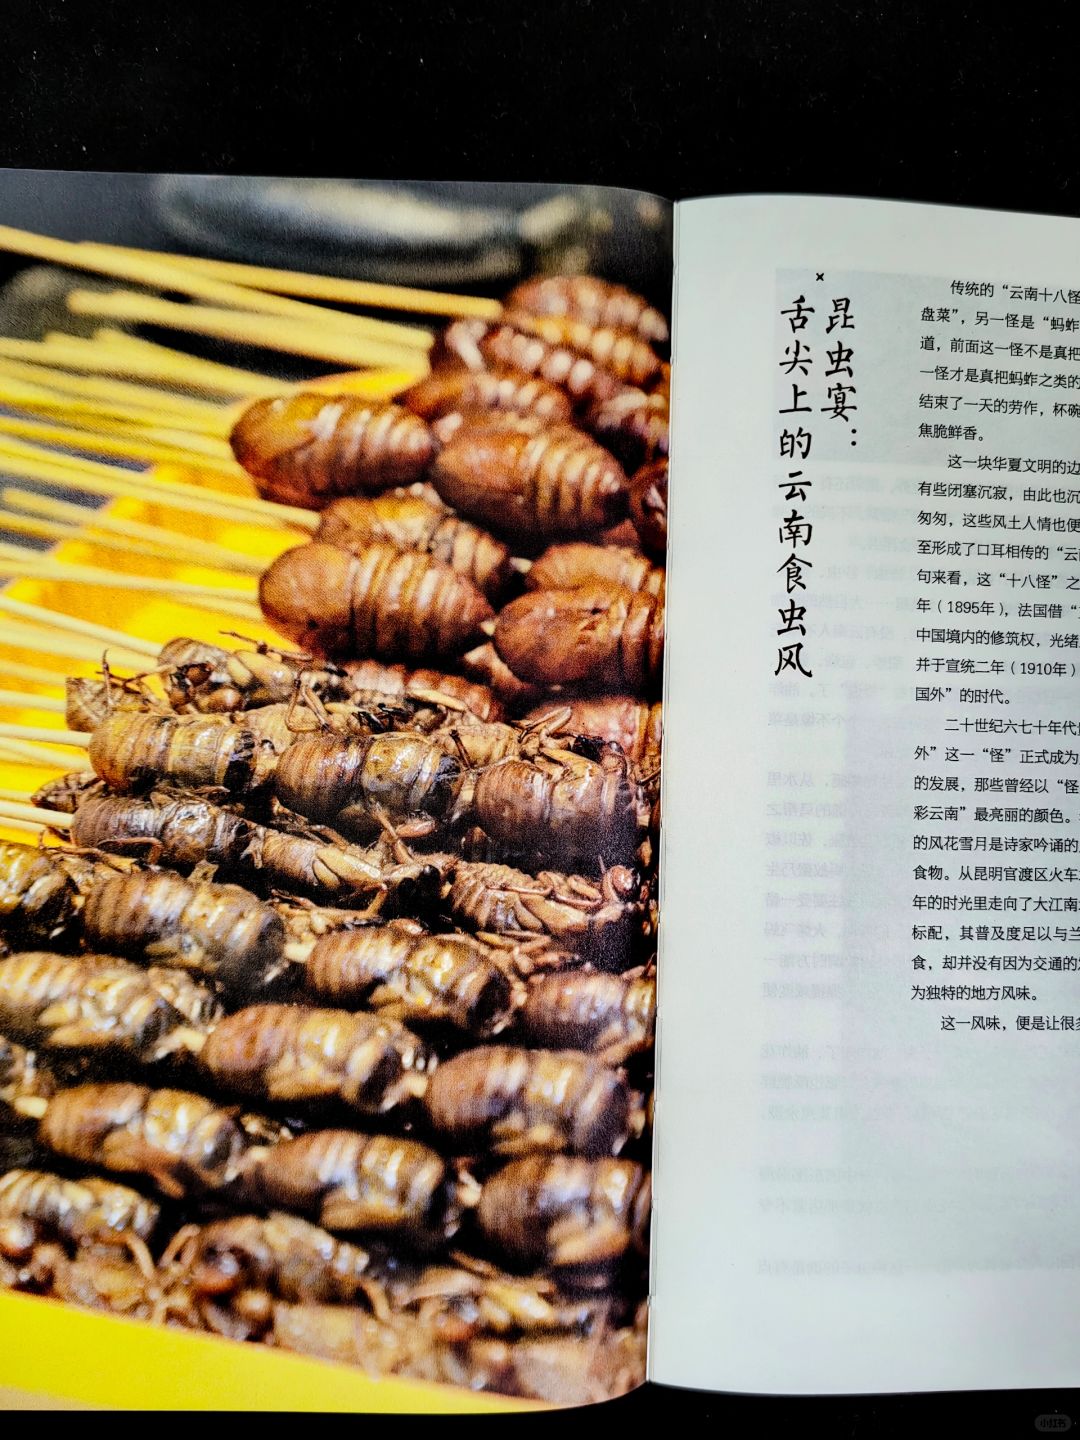 昆虫宴：
舌尖上的云南食虫风
传统的“云南十八怪
盘菜”，另一怪是“蚂蚱
道，前面这一怪不是真把
一怪才是真把蚂蚱之类的
结束了一天的劳作，杯碗
焦脆鲜香。
这一块华夏文明的边
有些闭塞沉寂，由此也沉
匆匆，这些风土人情也便
至形成了口耳相传的“云南
句来看，这“十八怪”之
年（1895年），法国借“
中国境内的修筑权，光绪
并于宣统二年（1910年）
国外”的时代。
二十世纪六七十年代
外”这一“怪”正式成为
的发展，那些曾经以“怪
彩云南”最亮丽的颜色。
的风花雪月是诗家吟诵的
食物。从昆明官渡区火车
年的时光里走向了大江南
标配，其普及度足以与兰
食，却并没有因为交通的
为独特的地方风味。
这一风味，便是让很多
小红书